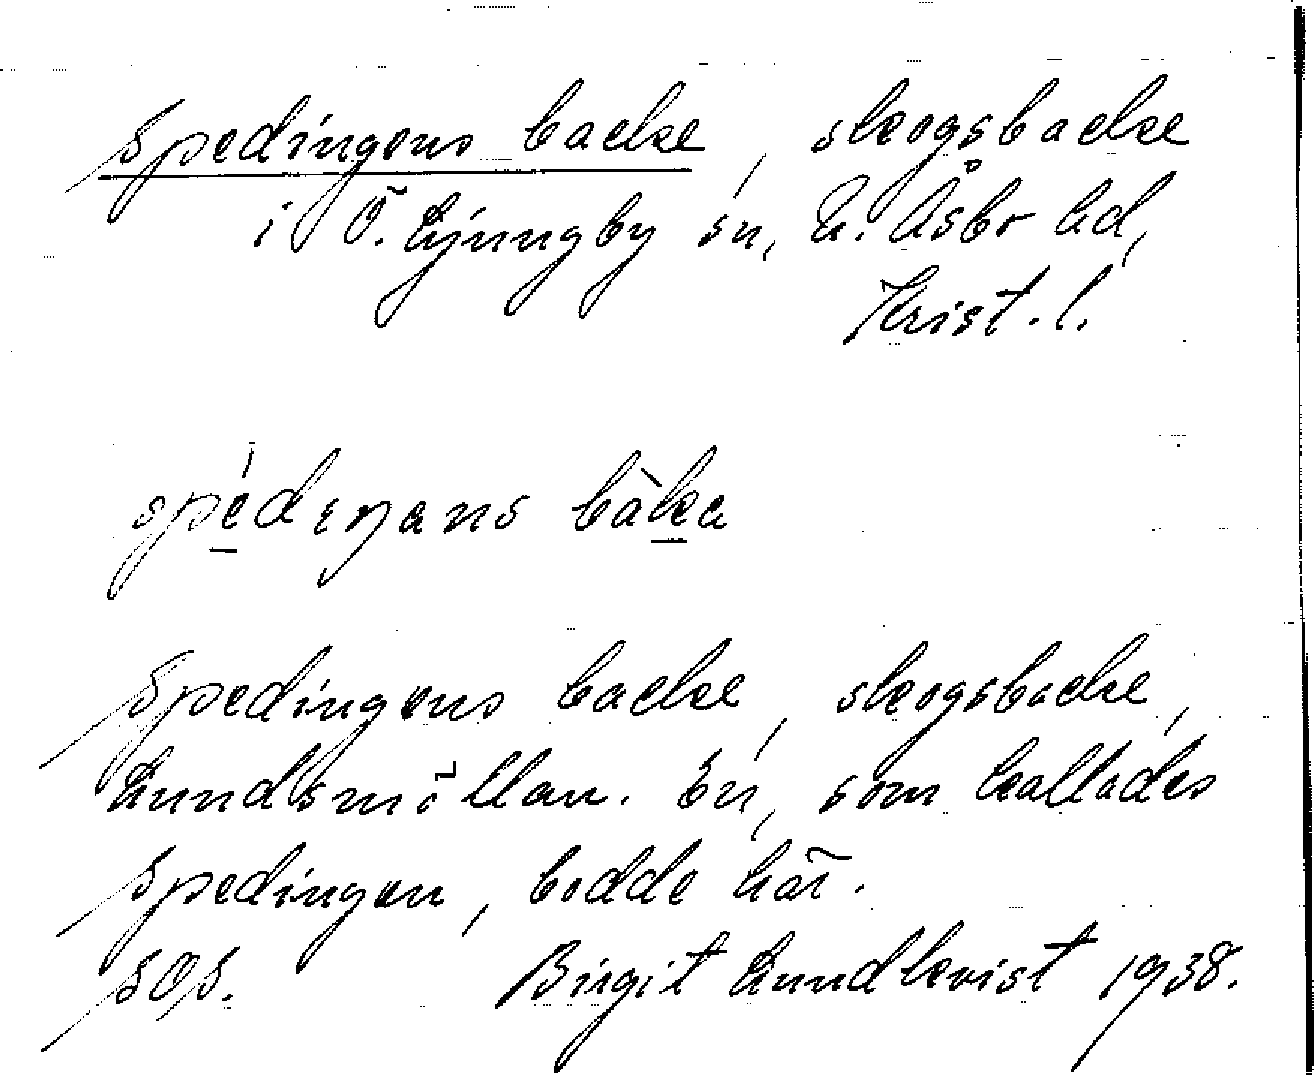 Spedingens backe, skogsbacke
i Ö. Ljungby sn, N. Åsbo hd,
Krist. l.
spédiŋans bàka
Spedingens backe, skogsbacke,
Lundsmöllan. En, som kallades
Spedingen, bodde här.
SOS. Birgit Lundkvist 1938.